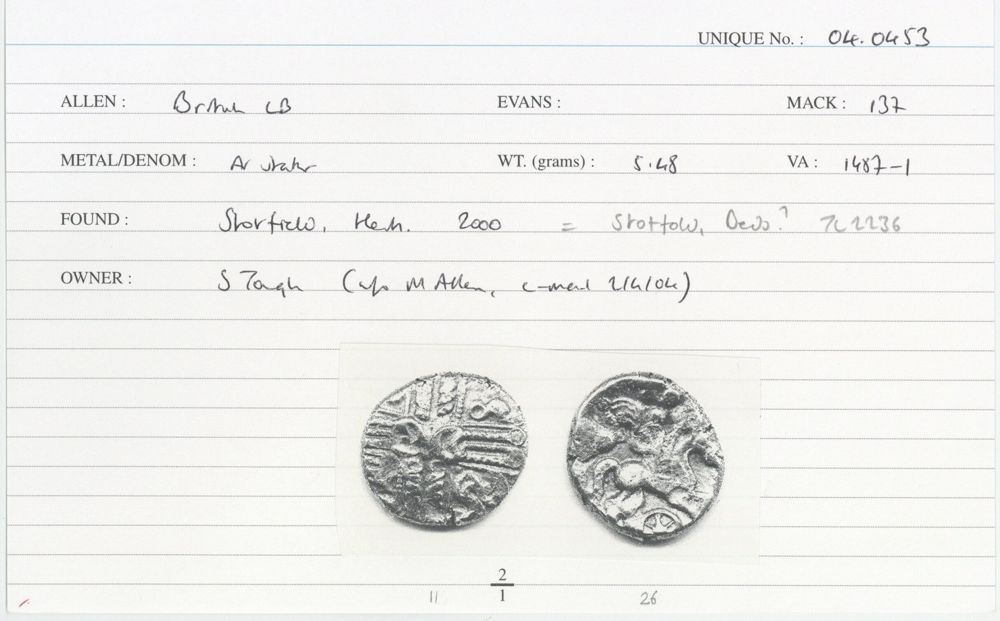 UNIQUE No. : 04.0453
ALLEN : British LB EVANS : MACK : 137
METAL/DENOM : Ar stater WT. (grams) : 5.48 VA : 1487-1
FOUND : Herts. 2000 = Stotfold, Beds? TL 2236
OWNER : S Tough (info M Allen, e-mail 2/4/04)
2
11 1 26